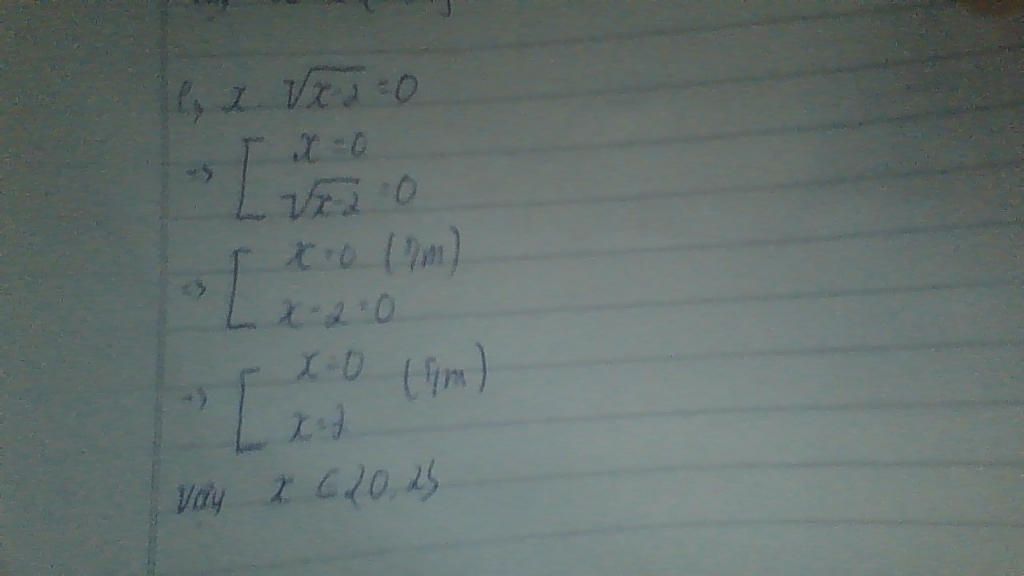 e, x √x-2 = 0
=> [ x = 0
√x-2 = 0
=> [ x = 0 (T/m)
x - 2 = 0
=> [ x = 0 (T/m)
x = 2
Vậy x ∈ {0, 2}